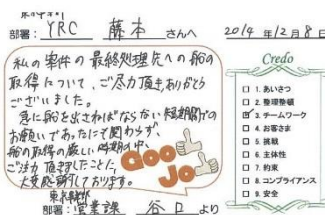 部署: YRC 藤本 さんへ 2014年12月8日
私の案件の最終処理先への船の
取得について、ご尽力頂き、ありがとう
ございました。
急に船を出さねばならない短期間での
お願いであったにも関わらず
船の取得の厳しい時期の中、
ご注力頂きましたことに、
大変感謝しております。
GOO
JO
部署: 営業課 谷口 より
Credo
1. あいさつ
2. 整理整頓
3. チームワーク
4. お客さま
5. 挑戦
6. 主体性
7. 約束
8. コンプライアンス
9. 安全